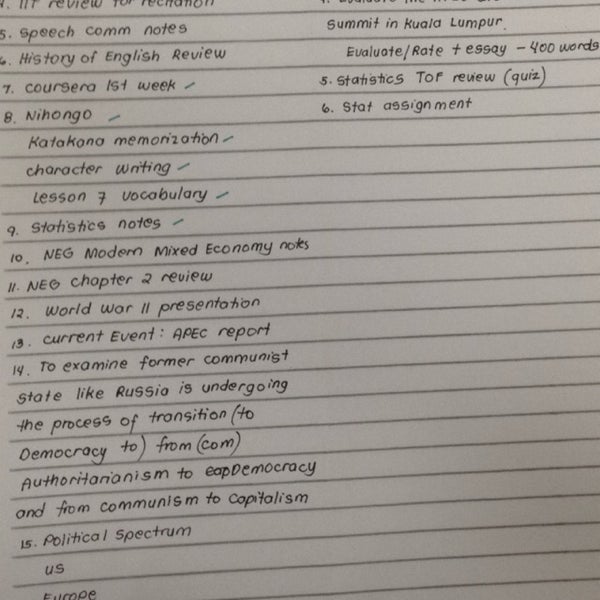 review for recitation
5. Speech comm notes
6. History of English Review
7. Coursera 1st week
8. Nihongo
Katakana memorization
character writing
Lesson 7 vocabulary
9. Statistics notes
10. NEG Modern Mixed Economy notes
11. NEG chapter 2 review
12. World War II presentation
13. Current Event: APEC report
14. To examine former communist
state like Russia is undergoing
the process of transition (to
Democracy to) from (com)
Authoritarianism to eapDemocracy
and from communism to capitalism
15. Political Spectrum
US
Europe
Summit in Kuala Lumpur.
Evaluate/Rate + essay - 400 words
5. Statistics TOF review (quiz)
6. Stat assignment